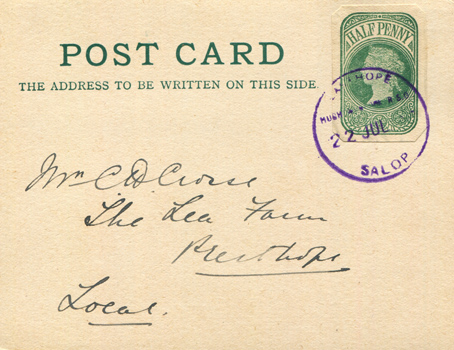 HALF PENNY
POST CARD
THE ADDRESS TO BE WRITTEN ON THIS SIDE.
22 JUL
SALOP
Mr C D Crosse
The Lea Farm
Presthope
Local.